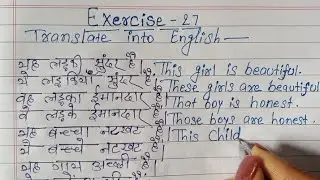 Exercise - 27
Translate into English—
यह लड़की सुंदर है। This girl is beautiful.
ये लड़कियाँ सुंदर हैं। These girls are beautiful
वह लड़का ईमानदार है। That boy is honest.
वे लड़के ईमानदार हैं। Those boys are honest.
यह बच्चा नटखट है। This Child
ये बच्चे नटखट हैं।
यह गाय अच्छी है।